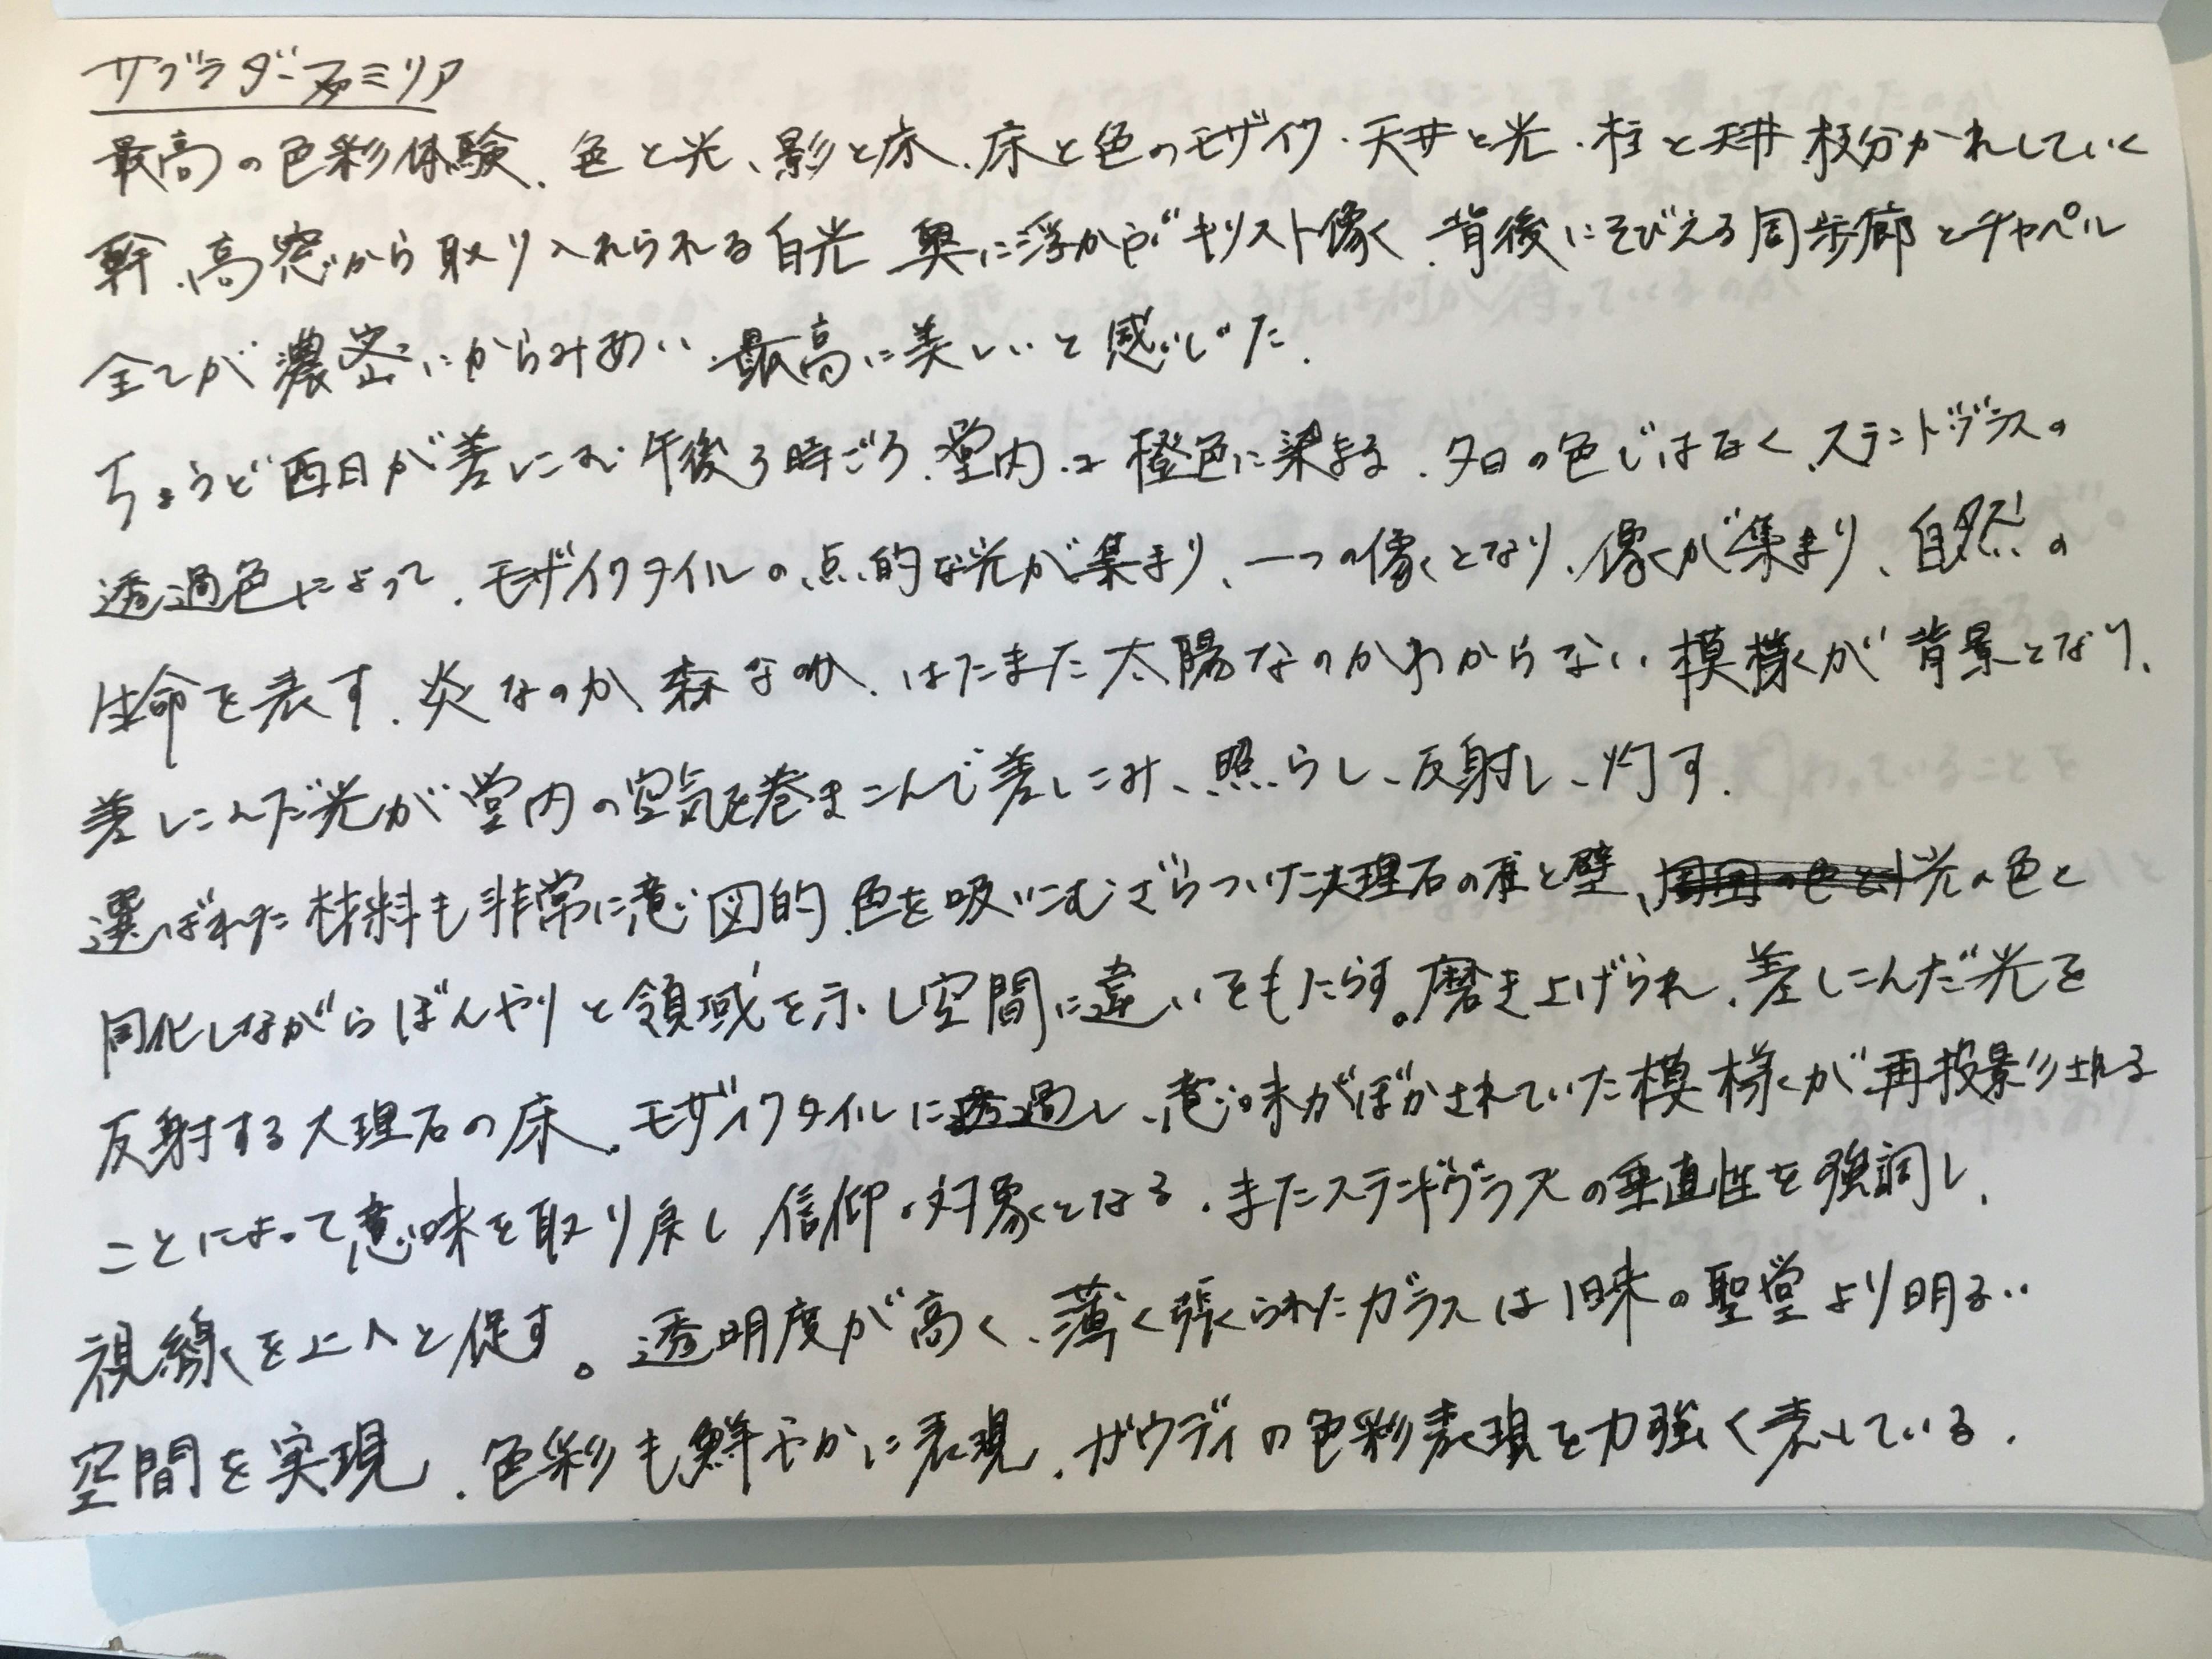 サグラダーファミリア
最高の色彩体験、色と光、影と床、床と色のモザイク・天井と光・柱と天井 枝分かれしていく
幹、高窓から取り入れられる自光 奥に浮かぶキリスト像、背後にそびえる周歩廊とチャペル
全てが濃密にからみあい、最高に美しいと感じた.
ちょうど西日が差しこむ午後3時ごろ、堂内は橙色に染まる.夕日の色ではなく、ステンドグラスの
透過色によって.モザイクタイルの点的な光が集まり、一つの像となり、像が集まり、自然の
生命を表す.炎なのか、森なのか、はたまた太陽なのかわからない模様が背景となり、
差しこんだ光が堂内の空気を巻きこんで差しこみ、照らし、反射し、灯す.
選ばれた材料も非常に意図的.色を吸いこむざらついた大理石の柱と壁、光の色と
同化しながらぼんやりと領域を示し空間に違いをもたらす。磨き上げられ、差しこんだ光を
反射する大理石の床。モザイクタイルに透過し、意味がぼかされていた模様が再投影される
ことによって意味を取り戻し、信仰の対象となる.またステンドグラスの垂直性を強調し、
視線を上へと促す。透明度が高く、薄く張られたガラスは旧来の聖堂より明るい
空間を実現.色彩も鮮やかに表現.ガウディの色彩表現を力強く表している.